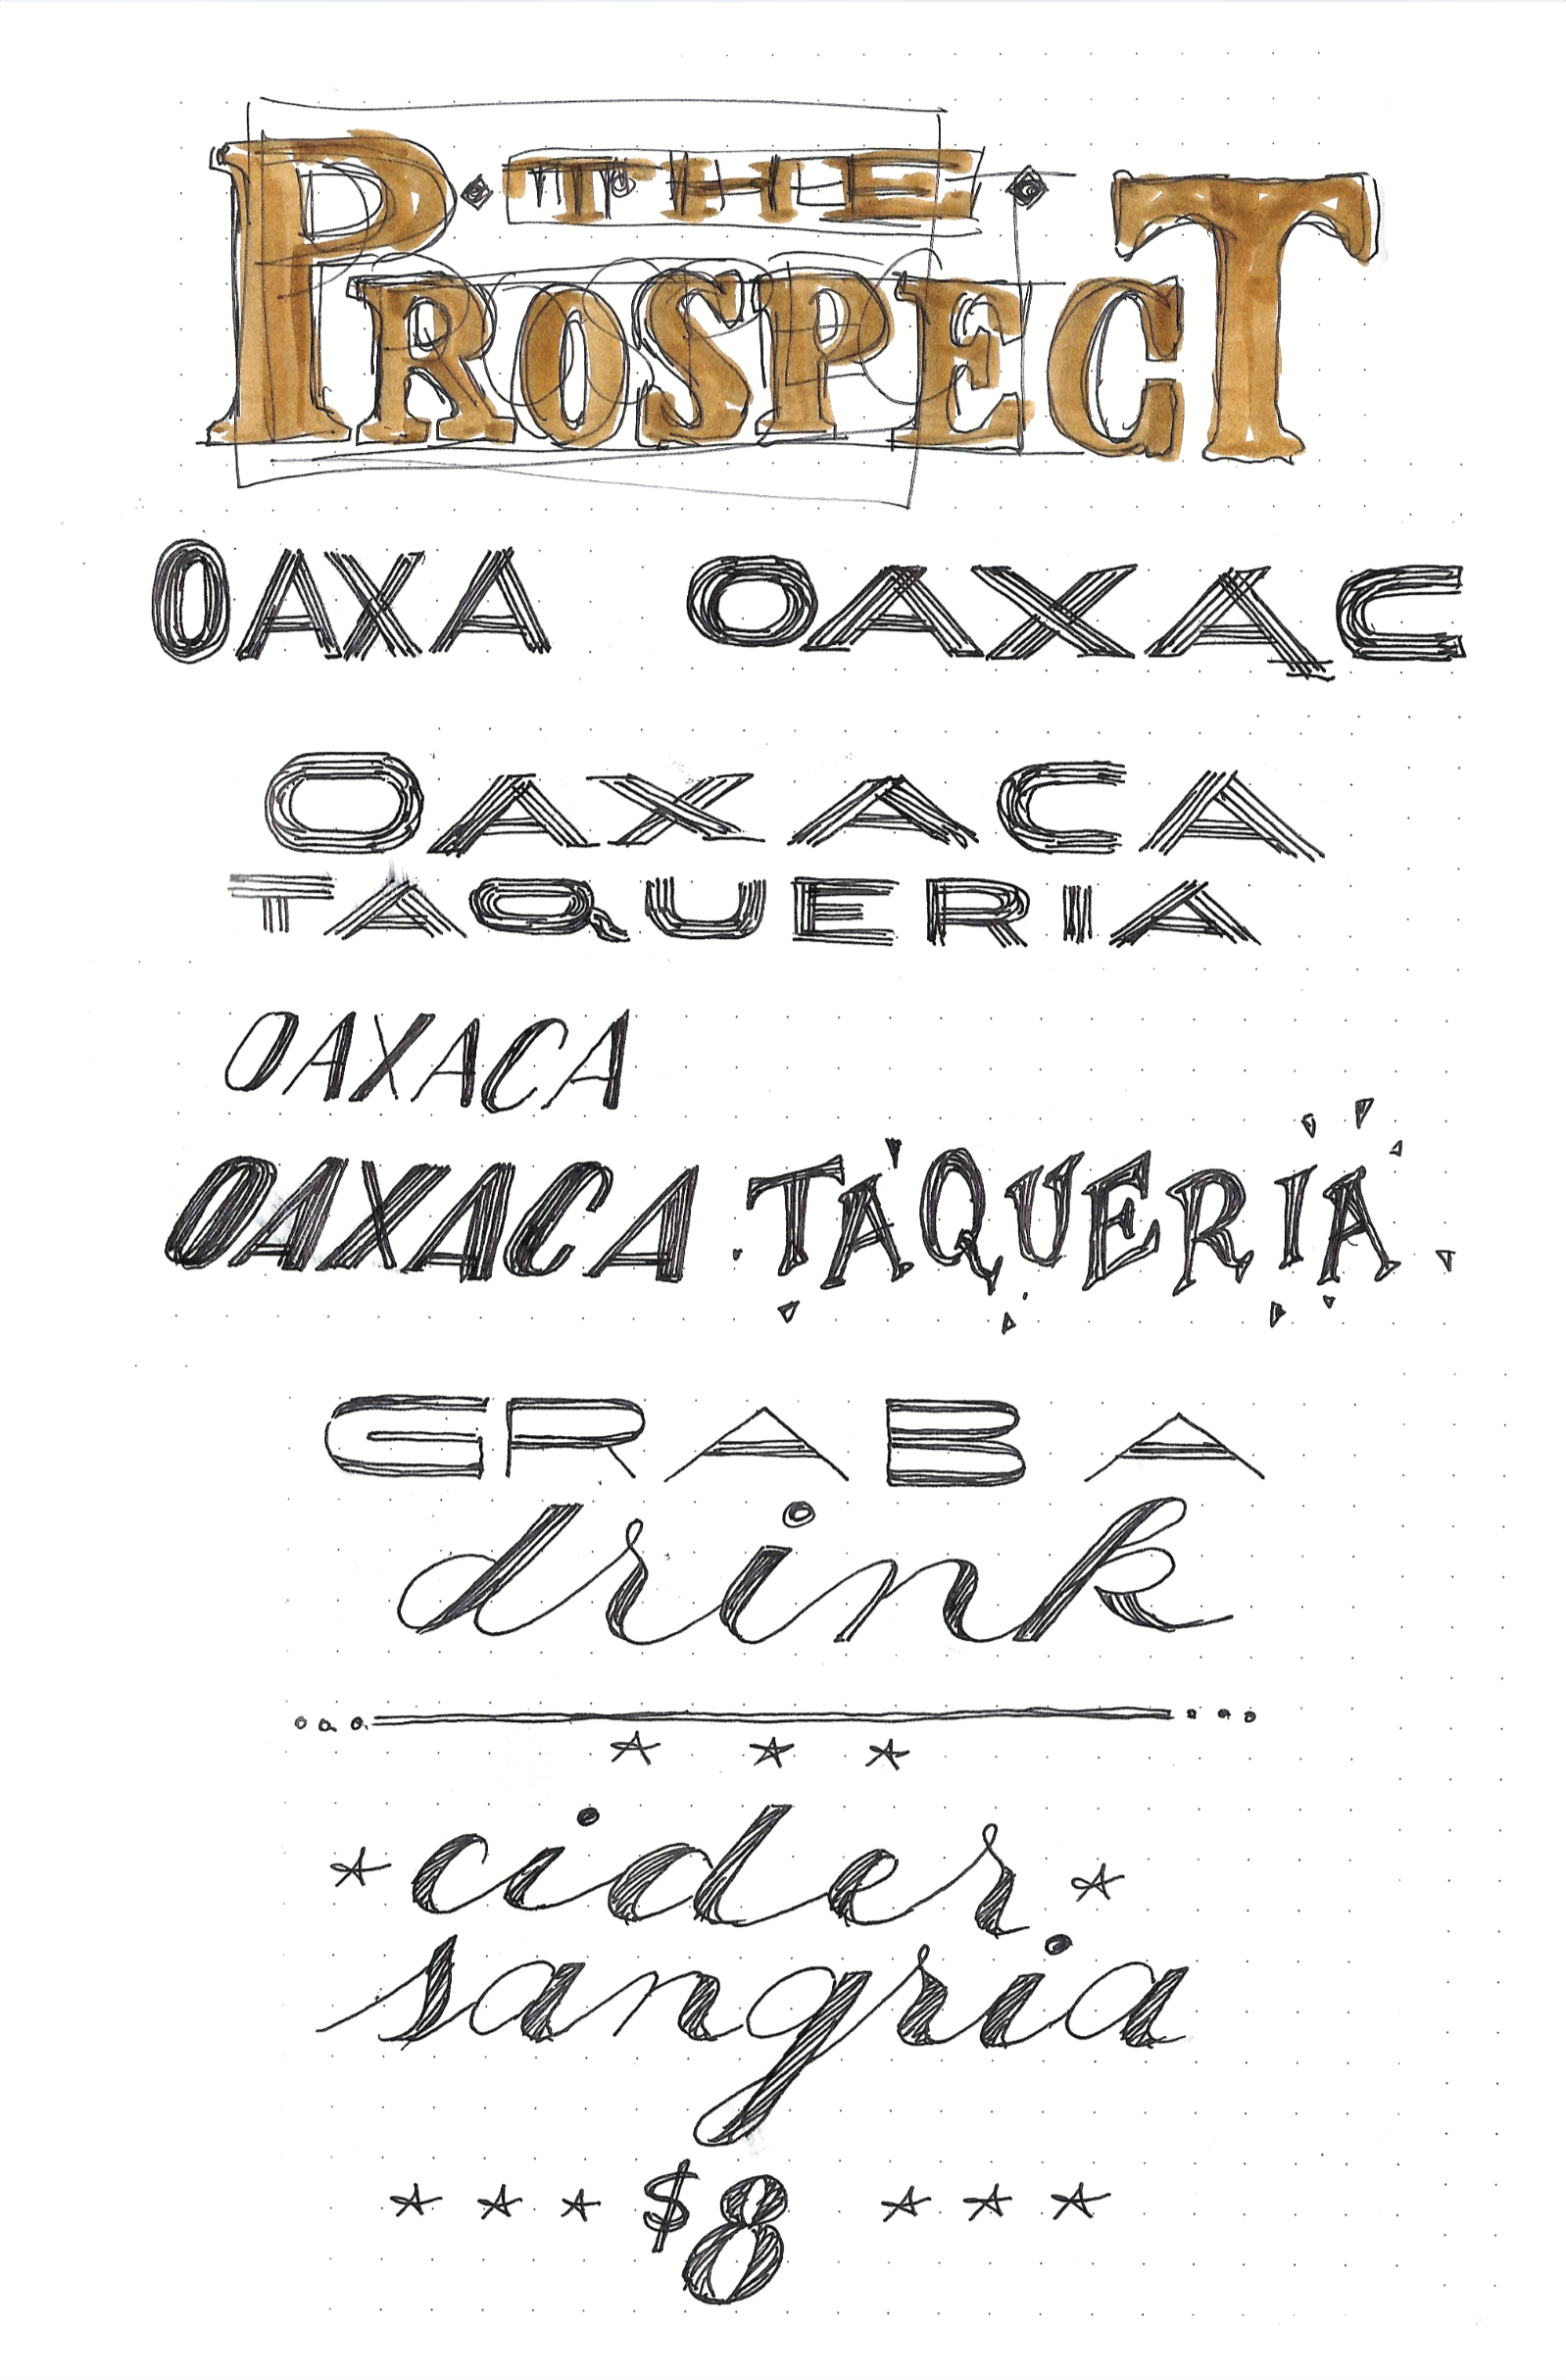 THE
PROSPECT
OAXA OAXAC
OAXACA
TAQUERIA
OAXACA
OAXACA TAQUERIA
GRAB A
drink
cider
sangria
$8